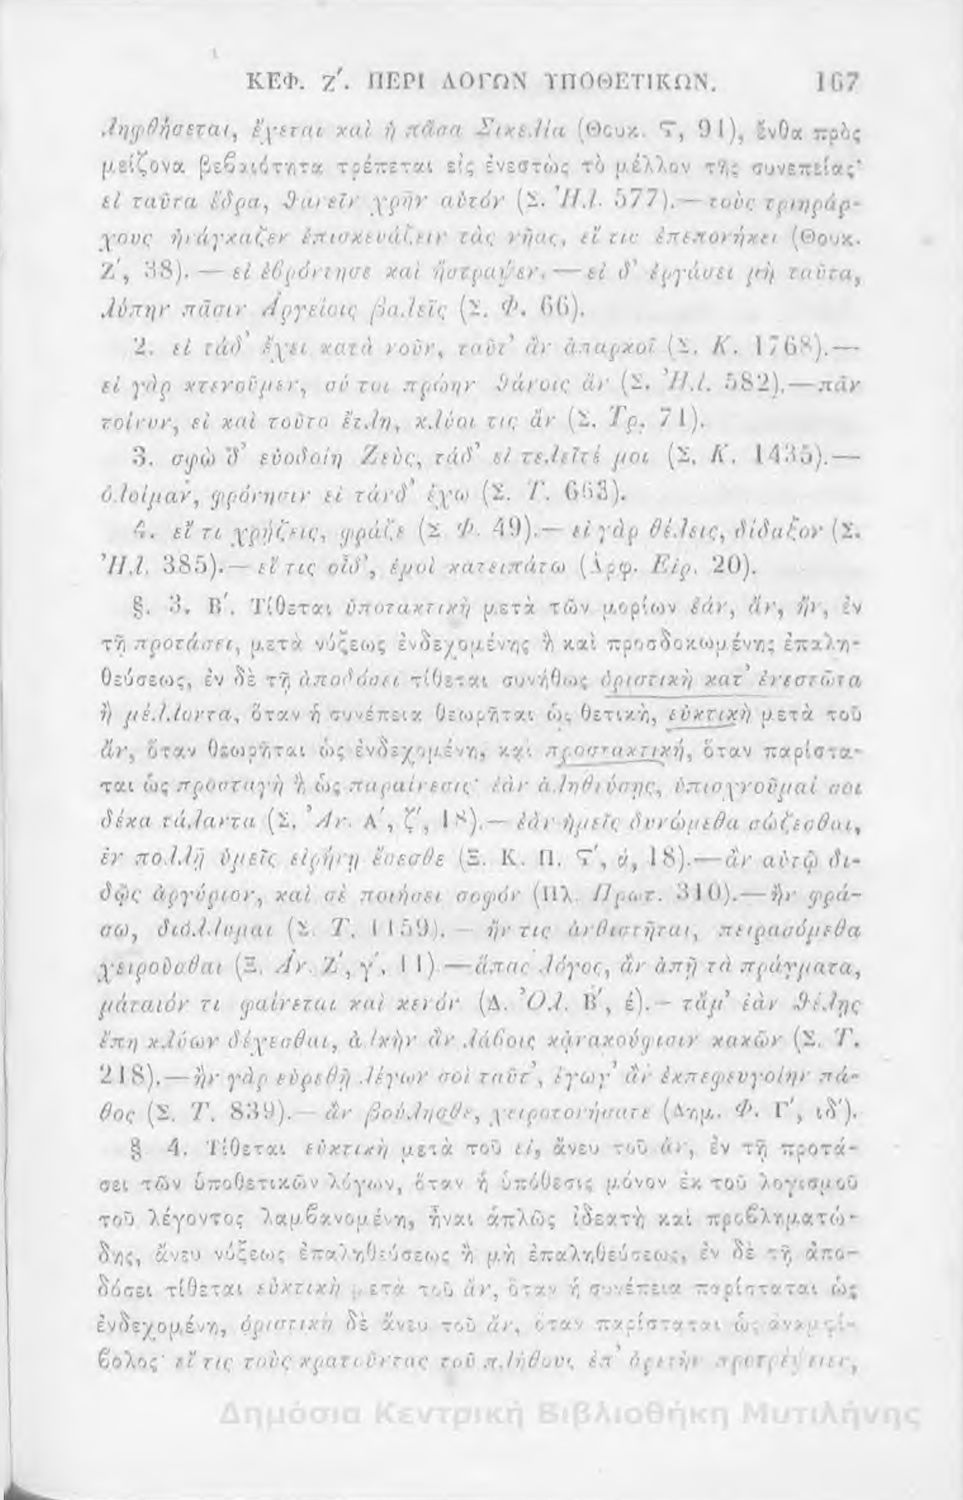 ΚΕΦ. Ζ΄. ΠΕΡΙ ΛΟΓΩΝ ΥΠΟΘΕΤΙΚΩΝ. 167
ληφθήσεται, ἔχεται καὶ ἡ πᾶσα Σικελία (Θουκ. Ϛ, 91), ἔνθα πρὸς
μείζονα βεβαιότητα τρέπεται εἰς ἐνεστὼς τὸ μέλλον τῆς συνεπείας·
εἰ ταῦτα ἔδρα, θανεῖν χρῆν αὐτόν (Σ. Ἠλ. 577).— τοὺς τριηράρ-
χους ἠνάγκαζεν ἐπισκευάζειν τὰς νῆας, εἴ τις ἐπεπονήκει (Θουκ.
Ζ΄, 38). — εἰ ἐβρόντησε καὶ ἤστραψεν. — εἰ δ᾽ ἐργάσει μὴ ταῦτα,
λύπην πᾶσιν Ἀργείοις βαλεῖς (Σ. Φ. 66).
2. εἰ τάδ᾽ ἔχει κατὰ νοῦν, ταῦτ᾽ ἂν ἀπαρκοῖ (Σ. Κ. 1768).—
εἰ γὰρ κτενοῦμεν, σύ τοι πρώην θάνοις ἄν (Σ. Ἠλ. 582).—πᾶν
τοίνυν, εἰ καὶ τοῦτο ἔτλη, κλύοι τις ἄν (Σ. Τρ. 71).
3. σφὼ δ᾽ εὐοδοίη Ζεύς, τάδ᾽ εἰ τελεῖτέ μοι (Σ. Κ. 1435).—
ὀλοίμαν, φρόνησιν εἰ τάνδ᾽ ἔχω (Σ. Τ. 663).
4. εἴ τι χρῄζεις, φράζε (Σ. Φ. 49).— εἰ γὰρ θέλεις, δίδαξον (Σ.
Ἠλ. 385).— εἴ τις οἶδ᾽, ἐμοὶ κατειπάτω (Ἀρφ. Εἰρ. 20).
§. 3. Β΄. Τίθεται ὑποτακτικὴ μετὰ τῶν μορίων ἐάν, ἄν, ἤν, ἐν
τῇ προτάσει, μετὰ νύξεως ἐνδεχομένης ἢ καὶ προσδοκωμένης ἐπαλη-
θεύσεως, ἐν δὲ τῇ ἀποδόσει τίθεται συνήθως ὁριστικὴ κατ᾽ ἐνεστῶτα
ἢ μέλλοντα, ὅταν ἡ συνέπεια θεωρῆται ὡς θετική, εὐκτικὴ μετὰ τοῦ
ἄν, ὅταν θεωρῆται ὡς ἐνδεχομένη, καὶ προστακτική, ὅταν παρίστα-
ται ὡς προσταγὴ ἢ ὡς παραίνεσις· ἐὰν ἀληθεύσῃς, ὑπισχνοῦμαί σοι
δέκα τάλαντα (Ξ. Ἀν. Α΄, ζ΄, 18).— ἐὰν ἡμεῖς δυνώμεθα σώζεσθαι,
ἐν πολλῇ ὑμεῖς εἰρήνῃ ἔσεσθε (Ξ. Κ. Π. Ϛ΄, ά, 18).—ἂν αὐτῷ δι-
δῷς ἀργύριον, καὶ σὲ ποιήσει σοφόν (Πλ. Πρωτ. 310).—ἢν φρά-
σω, διόλλυμαι (Σ. Τ. 1159). — ἤν τις ἀνθιστῆται, πειρασόμεθα
χειροῦσθαι (Ξ. Ἀν. Ζ΄, γ΄, 11).—ἅπας λόγος, ἂν ἀπῇ τὰ πράγματα,
μάταιόν τι φαίνεται καὶ κενόν (Δ. Ὀλ. Β΄, έ).— τἄμ᾽ ἐὰν θέλῃς
ἔπη κλύων δέχεσθαι, ἀλκὴν ἂν λάβοις κἀνακούφισιν κακῶν (Σ. Τ.
218).—ἢν γὰρ εὑρεθῇ λέγων σοὶ ταῦτ᾽, ἔγωγ᾽ ἂν ἐκπεφευγοίην πά-
θος (Σ. Τ. 839).— ἂν βούλησθε, χειροτονήσατε (Δημ. Φ. Γ΄, ιδ΄).
§ 4. Τίθεται εὐκτικὴ μετὰ τοῦ εἰ, ἄνευ τοῦ ἄν, ἐν τῇ προτά-
σει τῶν ὑποθετικῶν λόγων, ὅταν ἡ ὑπόθεσις μόνον ἐκ τοῦ λογισμοῦ
τοῦ λέγοντος λαμβανομένη, ἦναι ἁπλῶς ἰδεατὴ καὶ προβληματώ-
δης, ἄνευ νύξεως ἐπαληθεύσεως ἢ μὴ ἐπαληθεύσεως, ἐν δὲ τῇ ἀπο-
δόσει τίθεται εὐκτικὴ μετὰ τοῦ ἄν, ὅταν ἡ συνέπεια παρίσταται ὡς
ἐνδεχομένη, ὁριστικὴ δὲ ἄνευ τοῦ ἄν, ὅταν παρίσταται ὡς ἀναμφί-
βολος· εἴ τις τοὺς κρατοῦντας τοῦ πλήθους ἐπ᾽ ἀρετὴν προτρέψειεν,
Δημόσια Κεντρική Βιβλιοθήκη Μυτιλήνης